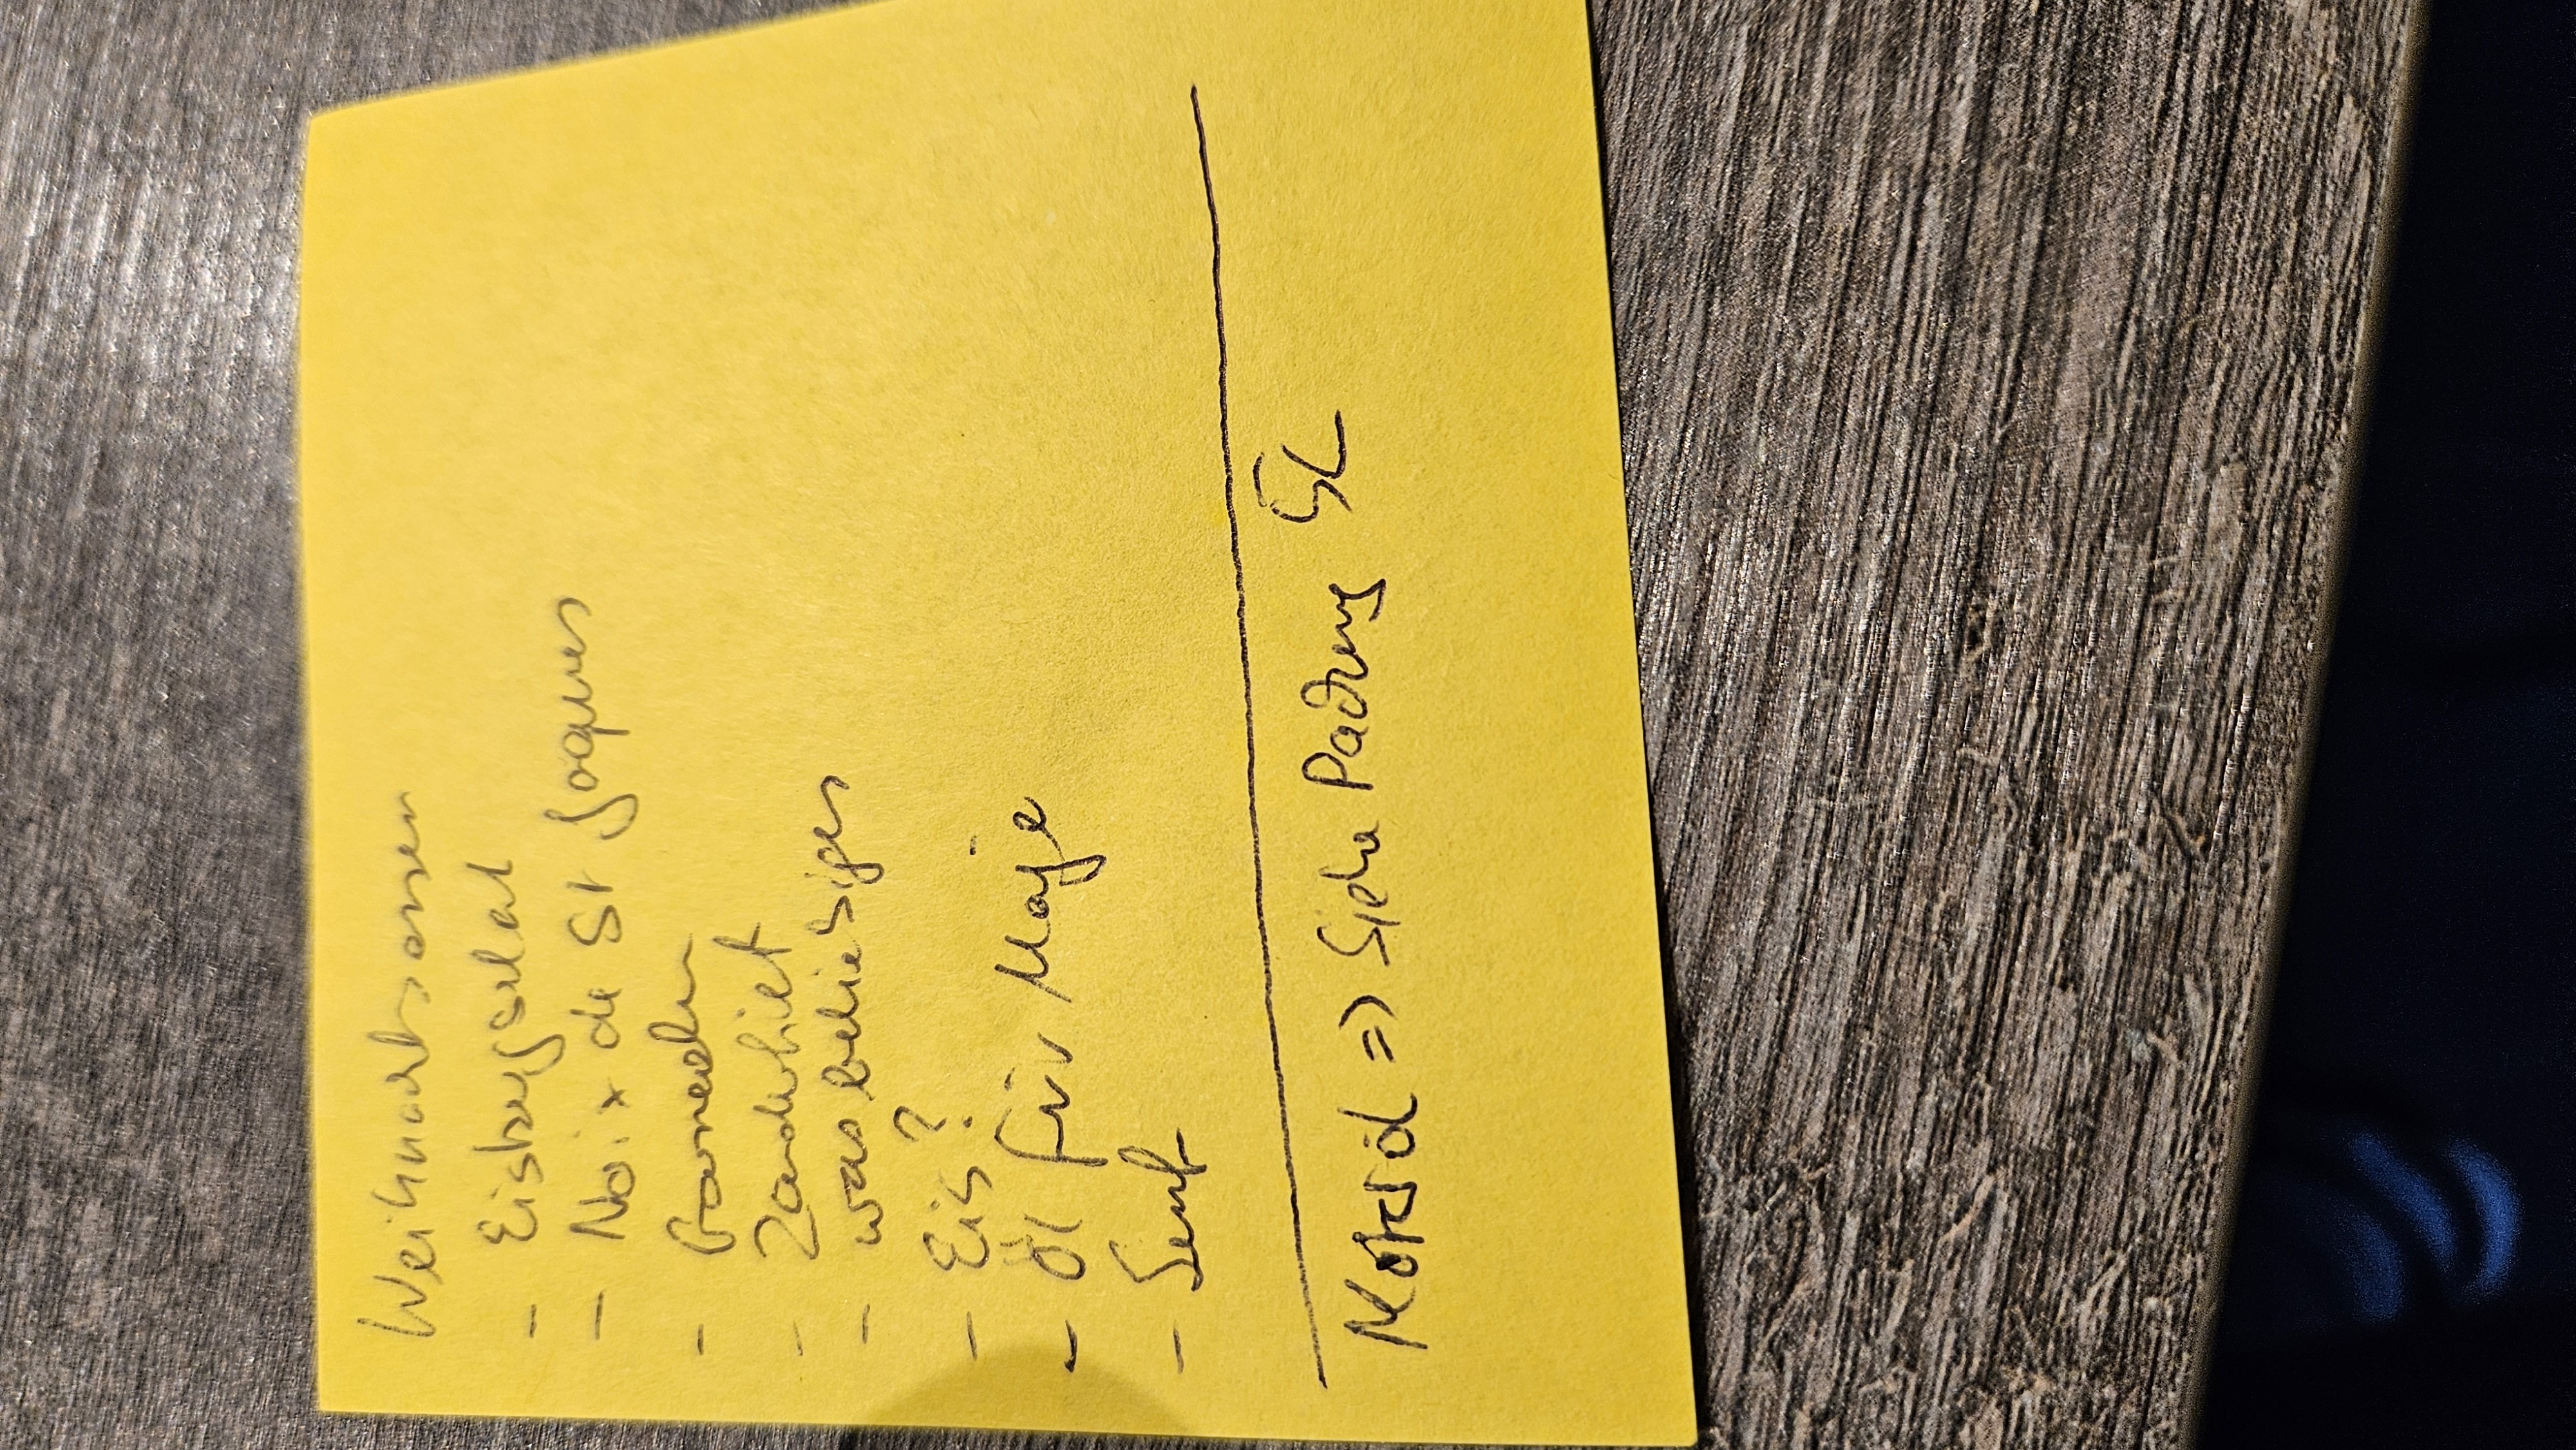 Weihnachtsessen
- Eisbergsalat
- Noix de St Jaques
- Garnelen
- Zanderfilet
- was beliebiges
- Eis?
- Öl für Majo
- Senf
Motoröl => Siehe Packung 5L